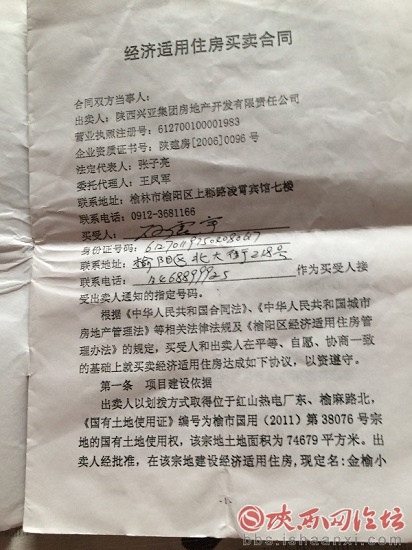 经济适用住房买卖合同
合同双方当事人：
出卖人：陕西兴亚集团房地产开发有限责任公司
营业执照注册号：612700100001983
企业资质证书号：陕建房[2006]0096号
法定代表人：张子亮
委托代理人：王凤军
联系地址：榆林市榆阳区上郡路凌霄宾馆七楼
联系电话：0912-3681166
买受人：
身份证号码：
联系地址：榆阳区北大街248号
联系电话： 作为买受人接
受出卖人通知的指定号码。
根据《中华人民共和国合同法》、《中华人民共和国城市
房地产管理法》等相关法律法规及《榆阳区经济适用住房管
理办法》的规定，买受人和出卖人在平等、自愿、协商一致
的基础上就买卖经济适用住房达成如下协议，以资遵守。
第一条 项目建设依据
出卖人以划拨方式取得位于红山热电厂东、榆麻路北，
《国有土地使用证》编号为榆市国用（2011）第38076号宗
地的国有土地使用权，该宗地土地面积为74679平方米。出
卖人经批准，在该宗地建设经济适用住房，现定名：金榆小
-1-
陕西网论坛
bbs.ishaanxi.com